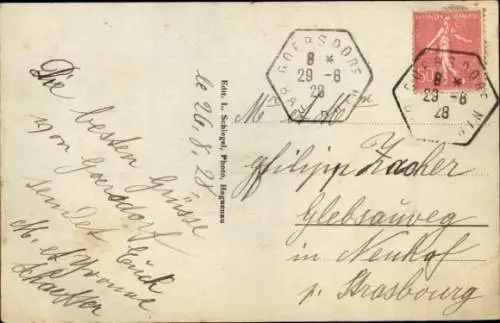 Die besten Grüsse
von Goersdorf
sendet Euch
M. et Yvonne
Schaeffer
le 26.8.28.
Edit. L. Schlegel, Photo, Haguenau
GOERSDORF
8 *
29 -8
28
BAS RHIN
RÉPUBLIQUE FRANÇAISE
50
GOERSDORF
8 *
29 -8
28
BAS RHIN
Mr et Mme
Philipp Zacher
Glebsauweg
in Neuhof
p. Strasbourg